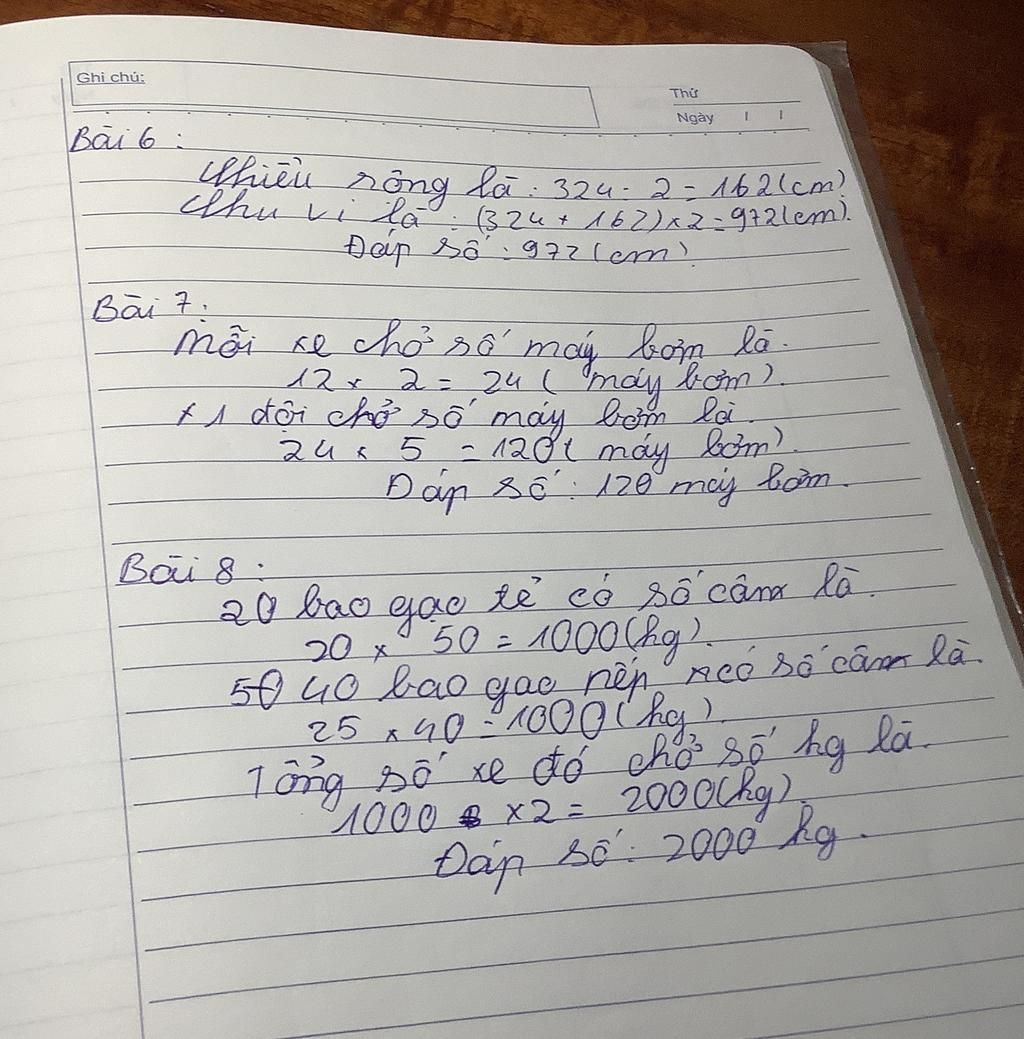 Ghi chú:
Thứ
Ngày / /
Bài 6 :
Chiều rộng là : 324 : 2 = 162 (cm).
Chu vi là : (324 + 162) × 2 = 972 (cm).
Đáp số : 972 (cm)
Bài 7 :
Mỗi xe chở số máy bơm là.
12 × 2 = 24 ( máy bơm).
+ 1 đội chở số máy bơm là.
24 × 5 = 120 ( máy bơm).
Đáp số : 120 máy bơm.
Bài 8 :
20 bao gạo tẻ có số cân là.
20 × 50 = 1000 (kg).
50 40 bao gạo nếp có số cân là.
25 × 40 = 1000 (kg).
Tổng số xe đó chở số kg là.
1000 × 2 = 2000 (kg).
Đáp số : 2000 kg.